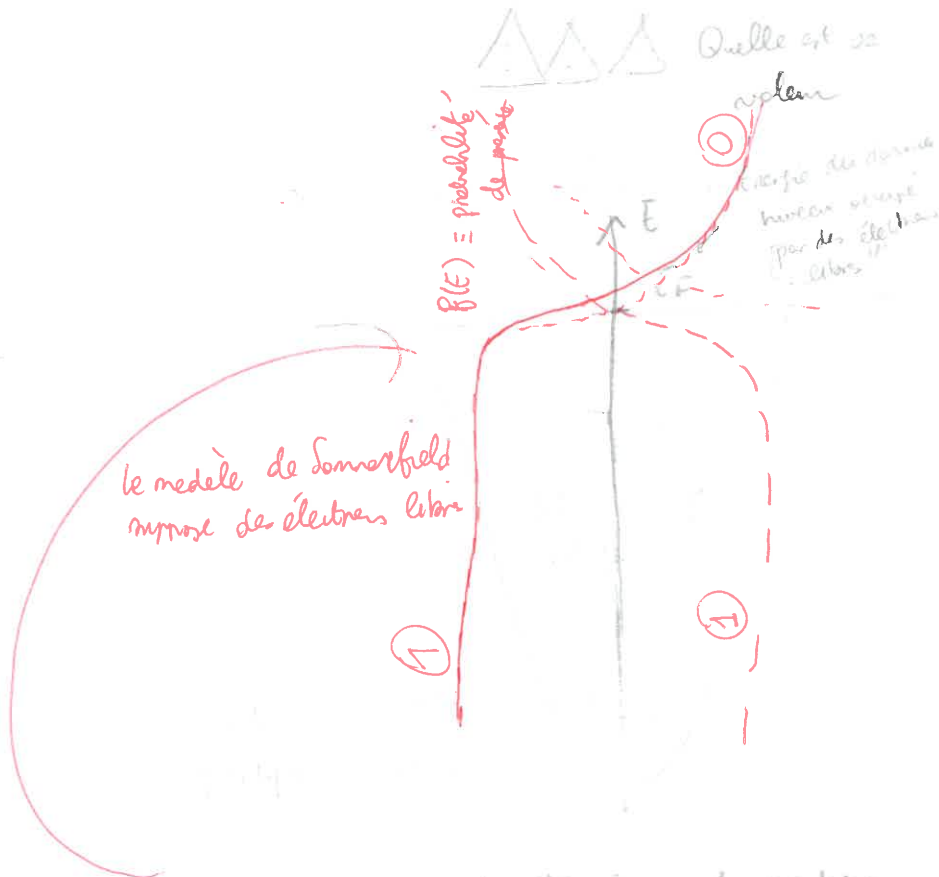 Quelle est sa
valeur
0
f(E) ≡ probabilité
de présence
Energie du dernier
niveau occupé
par des électrons
libres"
E
EF
le modèle de Sommerfield
suppose des électrons libres
1
1